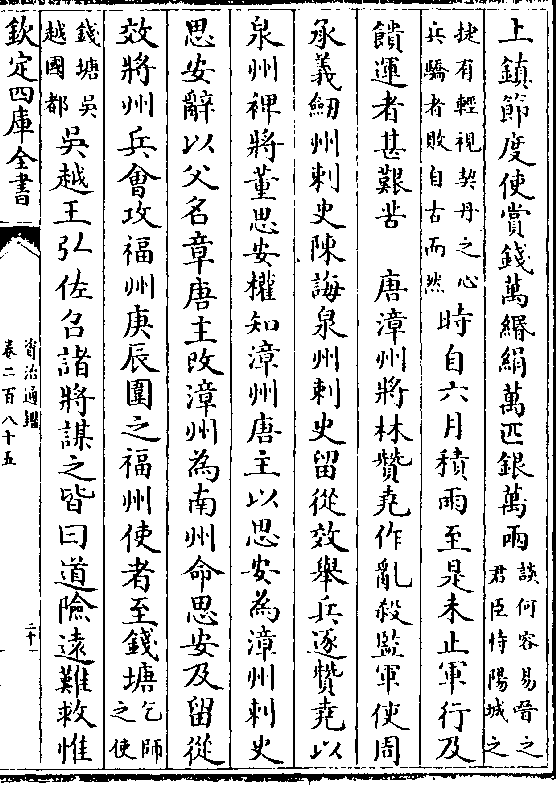 上鎮節度使賞錢萬緡絹萬匹銀萬兩談何容易晉之君臣恃陽城之
捷有輕視契丹之心兵驕者敗自古而然時自六月積雨至是未止軍行及
饋運者甚艱苦　唐漳州將林贊堯作亂殺監軍使周
承義劒州刺史陳誨泉州刺史留從效舉兵逐贊堯以
泉州裨將董思安權知漳州唐主以思安為漳州刺史
思安辭以父名章唐主改漳州為南州命思安及留從
效將州兵會攻福州庚辰圍之福州使者至錢塘乞師之使
錢塘吳越國都吳越王弘佐召諸將謀之皆曰道險遠難救惟
欽定四庫全書
資治通鑑
卷二百八十五
二十